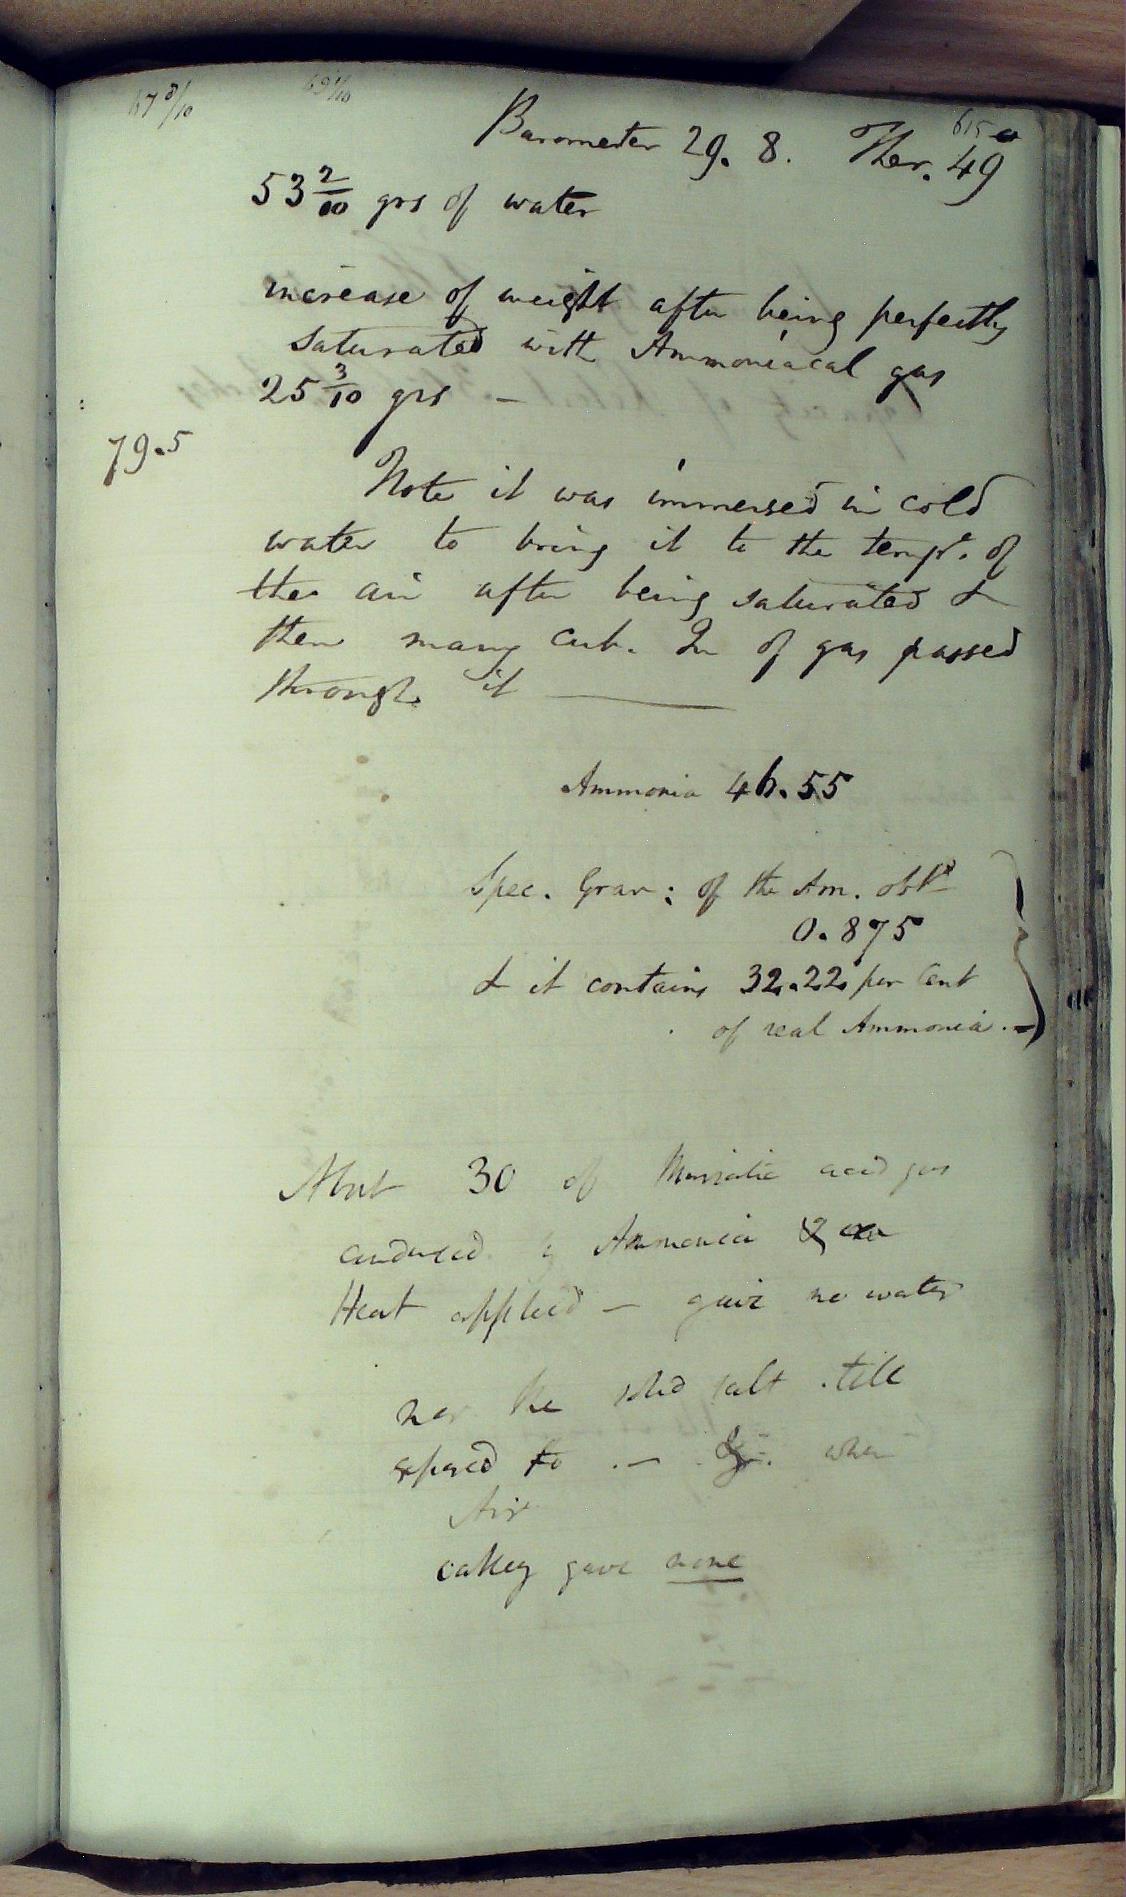 67 8/10 69 1/10
Barometer 29. 8. Ther. 49
53 2/10 grs of water
increase of weight after being perfectly
saturated with Ammoniacal gas
25 3/10 grs –
79.5
Note it was immersed in cold
water to bring it to the tempr. of
the air after being saturated &
then many Cub. In of gas passed
through it ———
Ammonia 46.55
Spec. Grav: of the Am. obtd
0.875
& it contains 32.22 per Cent
of real Ammonia. –
About 30 of Muriatic acid gas
condensed by Ammonia
Heat applied – gave no water
nor the solid salt till
exposed to . – when
Air
cakey gave none